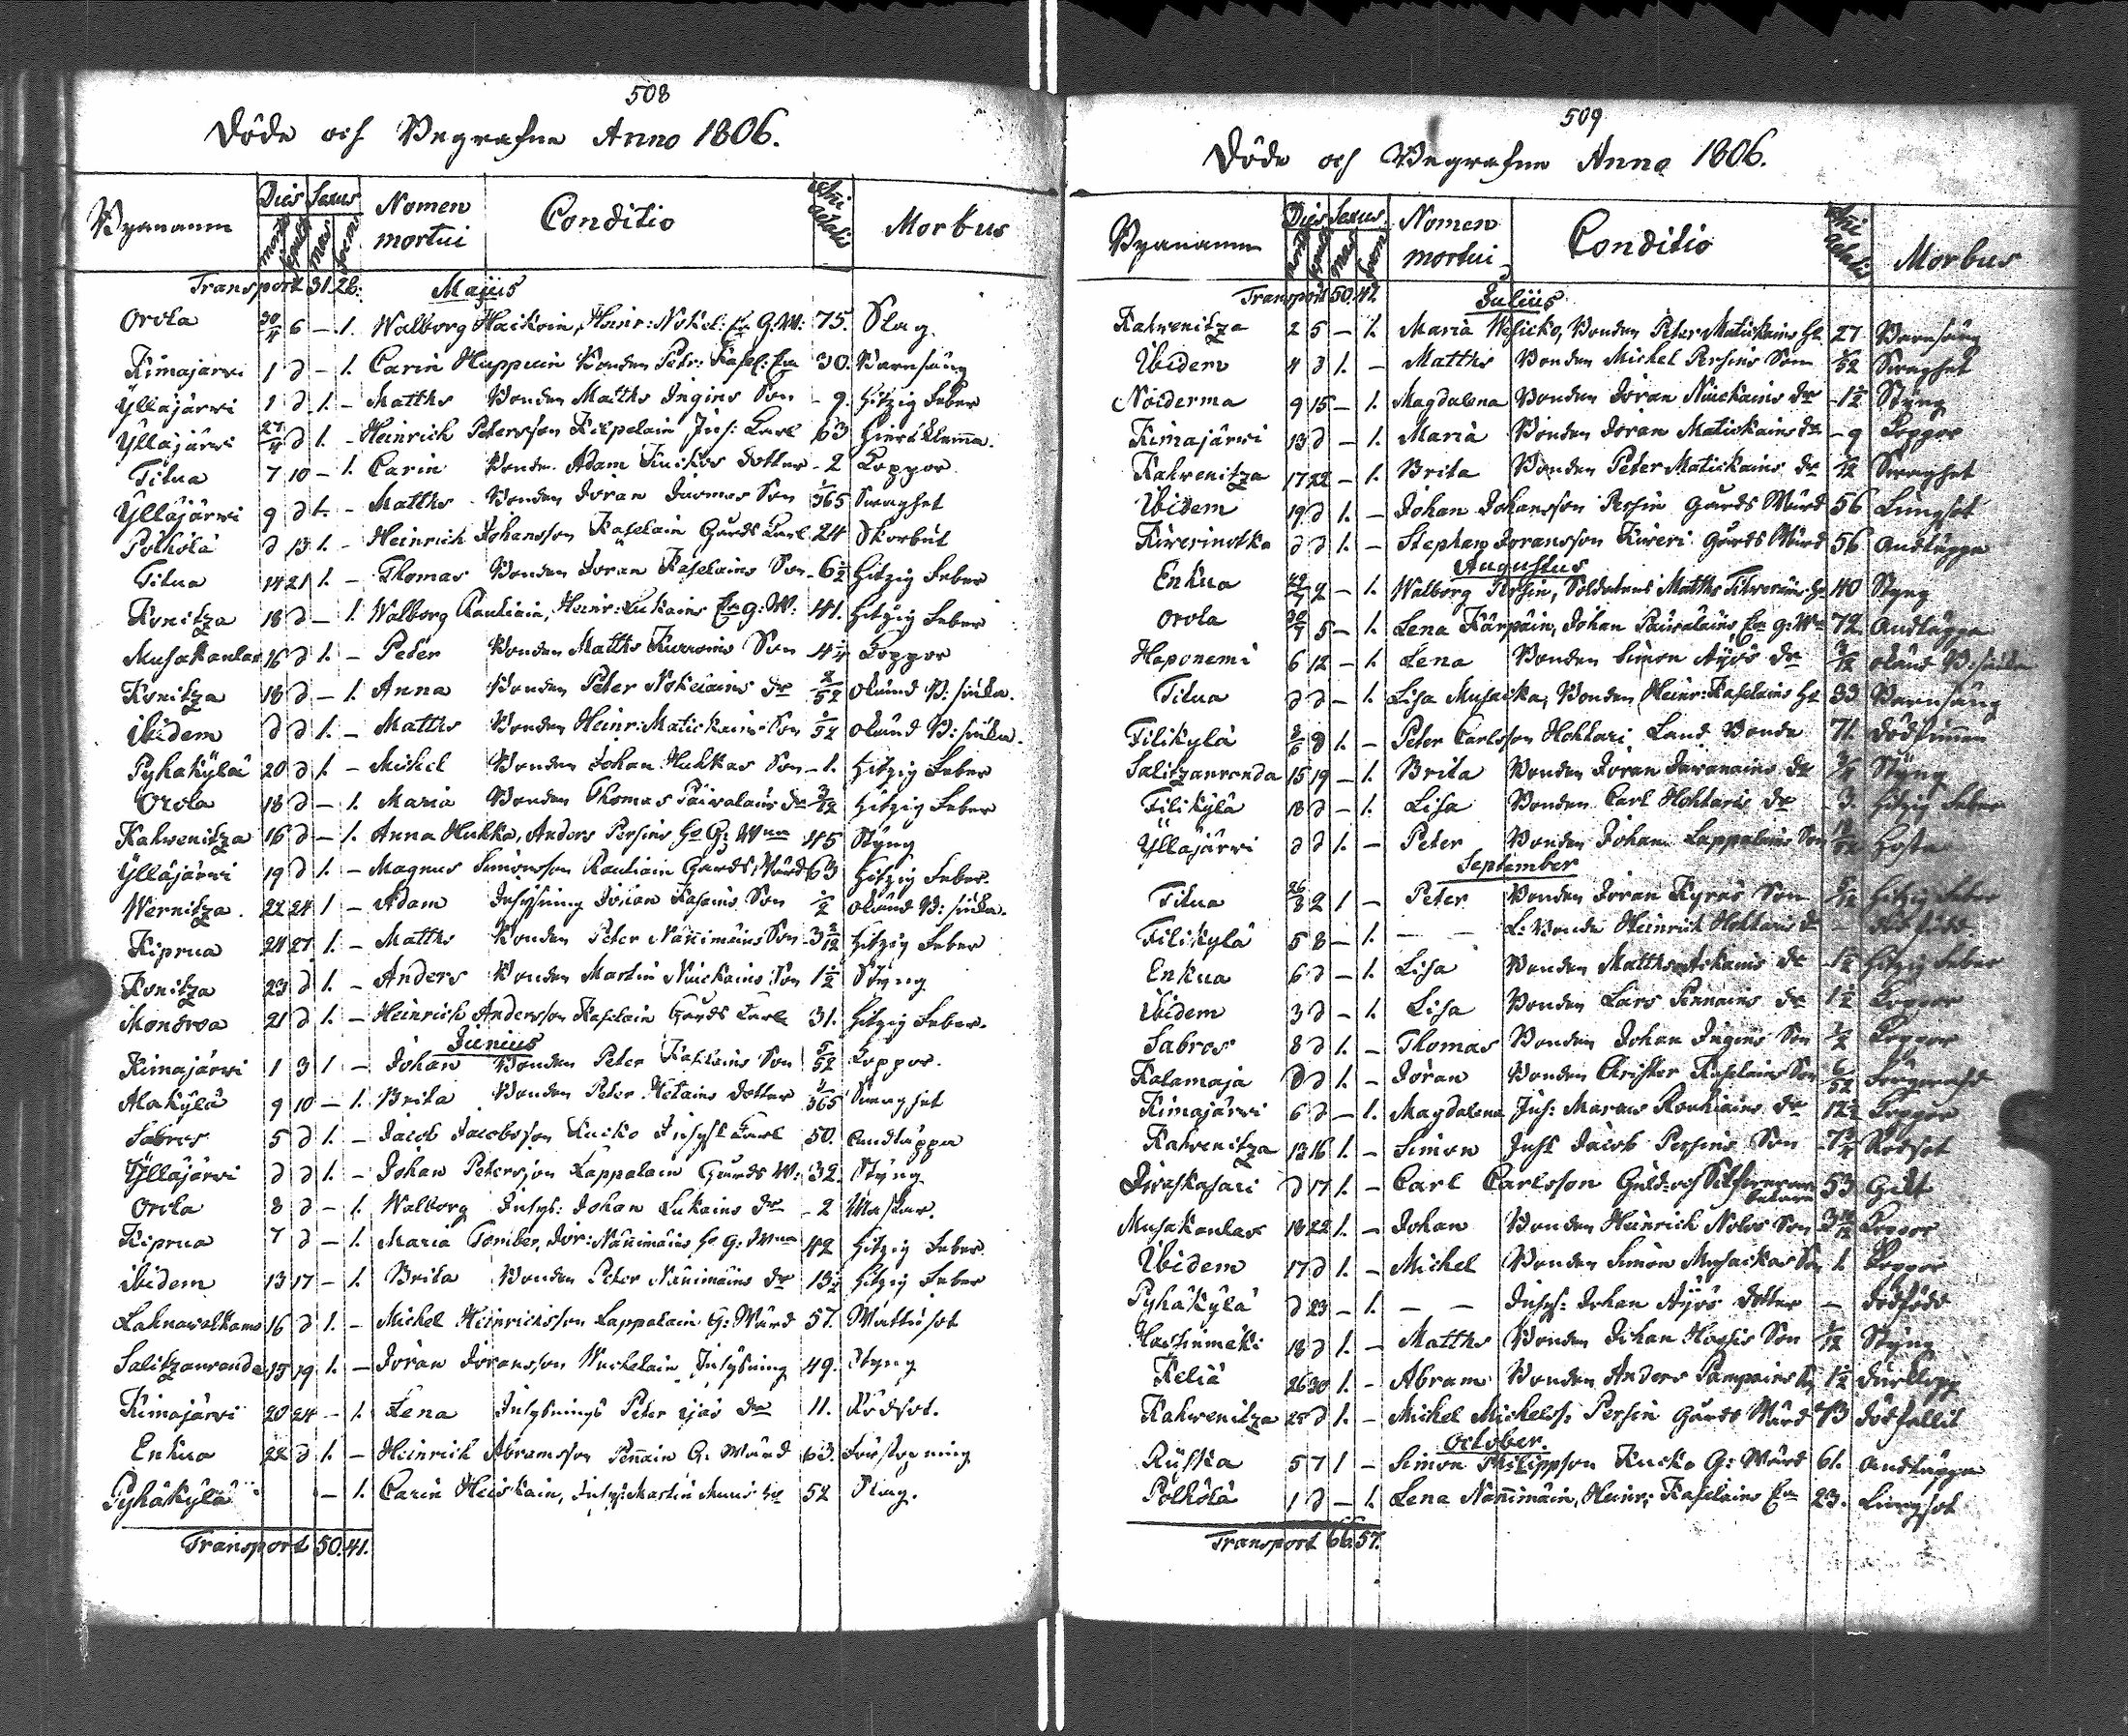 508
Döde och Begrafne Anno 1806.
Byanamn Dies Sexus Nomen mortui Conditio Anni Aetatis Morbus
mortis sepult Mas Foem
Transport 31. 26. Majus
Orola 30/4 6 – 1. Walborg Haikoin, Heinr: Nokel: Ea G: W: 75. Slag.
Kimajärvi 1 d – 1. Carin Huppuin Bonden Petr: Kasel: Ea 30. Barnsäng
Ylläjärvi 1 d 1. – Matths Bonden Matths Ingins Son – 9. Hitzig Feber
Ylläjärvi 27/4 d 1. – Heinrich Petersson Kilpelain Inh: Karl 63
Titua 7 10 – 1. Carin Bonde Adam Kuikos dotter – 2 Koppor
Ylläjärvi 9 d 1. – Matths Bonden Jöran Juomas Son 1/365 Swaghet
Polhola d 13 1. – Heinrich Johansson Kaselain Gårds Karl 24 Skorbut
Titua 14 21 1. – Thomas Bonden Jöran Kaselains Son – 6 1/2 Hitzig Feber
Konitza 18 d – 1. Walborg Raukiain, Heinr: Lukains Ea G: W: 41. Hitzig Feber
Musakanlax 16 d 1. – Peter Bonden Matths Son 4 1/4 Koppor
Konitza 18 d – 1. Anna Bonden Peter Nokelains dr 2/52 okänd B: siuka.
ibidem d d 1. – Matths Bonden Heinr: Matickains Son /52 okänd B: siuka.
Pyhäkylä 20 d 1. – Michel Bonden Johan Hukkas Son – 1. Hitzig Feber
Orola 18 d – 1. Maria Bonden Thomas Päivaläis dr 3/12 Hitzig Feber
Kahwenitza 16 d – 1. Anna Hukka, Anders Persins Ho G: Wna 45 Styng
Ylläjärvi 19 d 1. – Magnus Simonsson Raukiain Gårds Wärd 63 Hitzig Feber.
Wernitza. 22 24 1 – Adam Inhysning Johan Kasains Son 1/2 okänd B: siuka.
Kiprua 24 27 1. – Matths Bonden Peter Nännimäins Son – 3 2/12 Hitzig Feber
Konitza 23 d 1. – Anders Bonden Martin Nuickains Son 1 1/2 Styng
Mondroa 21 d 1. – Heinrich Andersson Kaselain Gårds Karl 31. Hitzig Feber.
Junius
Kimajärvi 1 3 1 – Johan Bonden Peter Son 5/52 Koppor.
Alakylä 9 10 – 1. Brita Bonden Peter Hetains dotter 1/365 Swaghet
Sabros 5 d 1. – Jacob Jacobsson Kuiko Inhys Karl 50. Andtäppa
Ylläjärvi d d 1. – Johan Petersson Lappalain Gårds W: 32 Styng
Orola 8 d – 1. Walborg Inhys: Johan Lukains dr – 2 Maskar.
Kiprua 7 d – 1. Maria Tomber, Jör: Nännimäins Ho G: Wna 42 Hitzig Feber
ibidem 13 17 – 1. Brita Bonden Peter Nännimäins dr 13 1/2 Hitzig Feber
Lahnawalkama 16 d 1. – Michel Heinrichsson Lappalain G: Wärd 57. Wattusot
Salitzanranda 15 19 1. – Jöran Jöransson Nuckelain Inhysning 49. Styng
Kimajärvi 20 24 – 1. Lena Inhysnings Peter dr 11. Rödsot.
Enkua 22 d 1. – Heinrich Abramsson Pennain G: Wärd 63. Förstopning
Pyhäkylä – 1. Carin Heiskain, Inhys: Martin Muus ho 52 Slag.
Transport 50. 41.
509
Döde och Begrafne Anno 1806.
Byanamn Dies Sexus Nomen mortui Conditio Anni Aetatis Morbus
Transport 50. 42. Julius
Kahwenitza 2 5 – 1. Maria Wesicko, Bonden Peter Matickains ho 27 Barnsäng
Ibidem 4 d 1. – Matths Bonden Michel Persins Son /52 Swaghet
Noiderma 9 15 – 1. Magdalena Bonden Jöran Nuickains dr – 1 1/2 Styng
Kimajärvi 13 d – 1. Maria Bonden Jöran Matickains dr – 9 Koppor
Kahwenitza 17 22 – 1. Brita Bonden Peter Matickains dr /12 Swaghet
Ibidem 19 d 1. – Johan Johansson Persin Gårds Wärd 56 Lungsot
Kiwerinotka d d 1. – Stephan Jöransson Kiweri Gårds Wärd 56 Andtäppa
Augustus
Enkua 29/7 2 – 1. Walborg Persin, Soldatens Matths ho 40 Styng
Orola 30/7 5 – 1. Lena Kärpäin, Johan Päiväläins Ea G: Wa 72 Andtäppa
Haponemi 6 12 – 1. Lena Bonden Simon Äyös dr /12 okänd B: siuka
Titua d d – 1. Lisa Musacka, Bonden Heinr: Kaselains ho 33 Barnsäng
Filikylä 8 1. – Peter Carlsson Hohtari Land Bonde 71.
Salitzanranda 15 19 – 1. Brita Bonden Jöran dr 3/4 Styng
Filikylä 18 d – 1. Lisa Bonden Carl Hohtaris dr – 3. Hitzig Feber
Ylläjärvi d d 1. – Peter Bonden Johan Lappalains Son Hosta
September
Titua 26/8 2 1 – Peter Bonden Jöran Kyräs Son Hitzig Feber
Filikylä 5 8 – 1. – – L: Bonde Heinrich Hohtaris dr –
Enkua 6 d – 1. Lisa Bonden Matths dr – 1 1/2 Hitzig Feber
ibidem 3 d – 1. Lisa Bonden Lars Pennains dr 1 1/2 Koppor
Sabros 8 d 1. – Thomas Bonden Johan Ingins Son 1/2 Koppor
Kalamaja d d 1. – Jöran Bonden Christer Kaselains Son 6/52
Kimajärvi 6 d – 1. Magdalena Inh: Marcus Raukiains dr 12 Koppor
Kahwenitza 13 16 1. – Simon Inhs Jacob Persins Son – 7 Rödsot
d 17 1. – Carl Carlsson Guld- och Silfverarbetare 53 Gikt
Musakanlax 18 22 1. – Johan Bonden Heinrich Nolos Son 3 10/12 Koppor
Ibidem 17 d 1. – Michel Bonden Simon Musackas Son 1. Koppor
Pyhäkylä d 23 – 1. – – Inhys: Johan Äyös dotter – dödfödd
Hassinmäki 18 d 1. – Matths Bonden Johan Son /12 Styng
Kelia 26 30 1. – Abram Bonden Anders Pämpains Son 1 1/2 Durklopp
Kahwenitza 25 d 1. – Michel Michelss: Persin Gårds Wärd 73
October.
Ruska 5 7 1 – Simon Philippson Kucko G: Wärd 61. Andtäppa
Polhola 1 d – 1. Lena Nännimäin, Heinr: Kaselains Ea 23. Lungsot
Transport 66. 57.